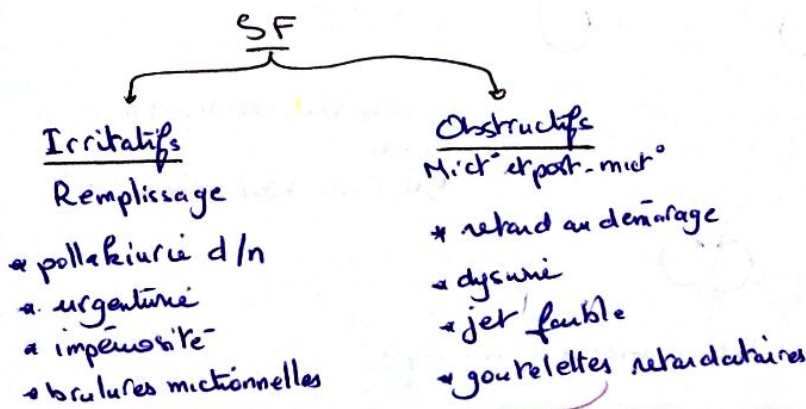 SF
Irritatifs
Remplissage
* pollakiurie d/n
* urgenturie
* impériosité
* brulures mictionnelles
Obstructifs
Mict° et post-mict°
* retard au démarage
* dysurie
* jet faible
* gouttelettes retardataires